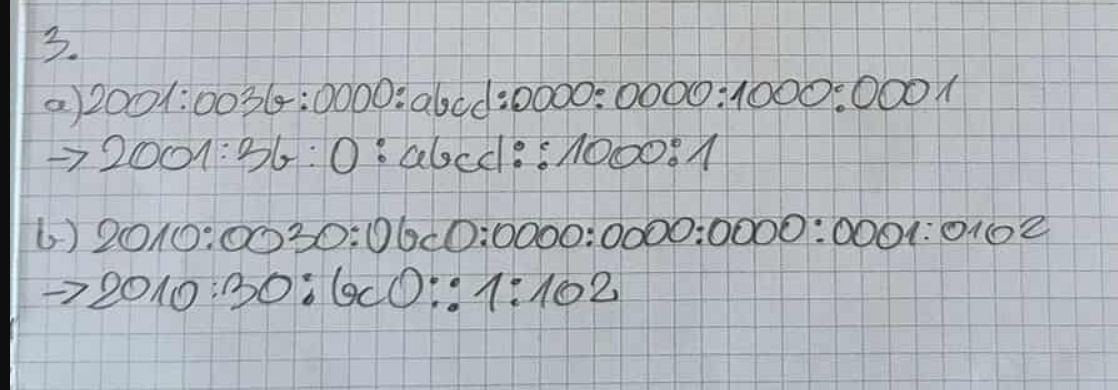 3.
a) 2001:003b:0000:abcd:0000:0000:1000:0001
→ 2001:3b:0:abcd::1000:1
b) 2010:0030:0bc0:0000:0000:0000:0001:0102
→ 2010:30:bc0::1:102